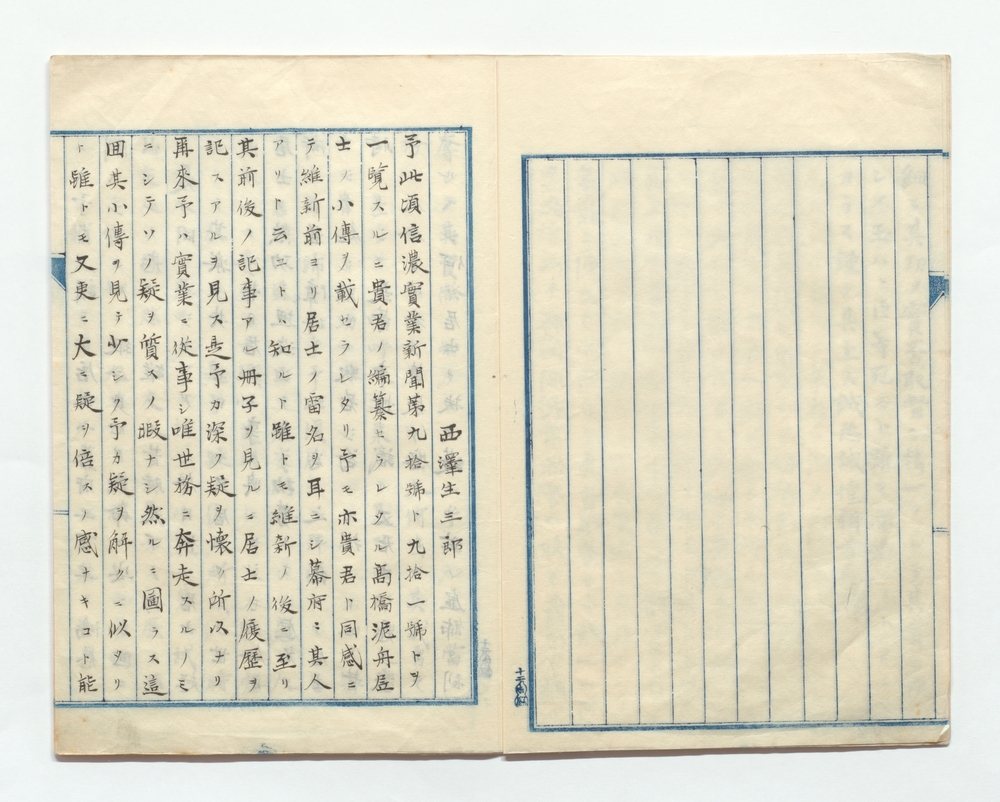 西澤生三郎
予此頃信濃實業新聞第九拾號ト九拾一號トヲ
一覽スルニ貴君ノ編纂セラレタル高橋泥舟居
士ノ小傳ヲ載セラレタリ予モ亦貴君ト同感ニ
テ維新前ヨリ居士ノ雷名ヲ耳ニシ幕府ニ其人
アリト云コトハ知ルト雖トモ維新ノ後ニ至リ
其前後ノ記事アル冊子ヲ見ルニ居士ノ履歷ヲ
記スアルヲ見ス是予カ深ク疑ヲ懷ク所以ナリ
再來予ハ實業ニ從事シ唯世務ニ奔走スルノミ
ニシテソノ疑ヲ質スノ暇ナシ然ルニ圖ラス這
回其小傳ヲ見テ少シク予カ疑ヲ解クニ似タリ
ト雖トモ又更ニ大ニ疑ヲ倍スノ感ナキコト能